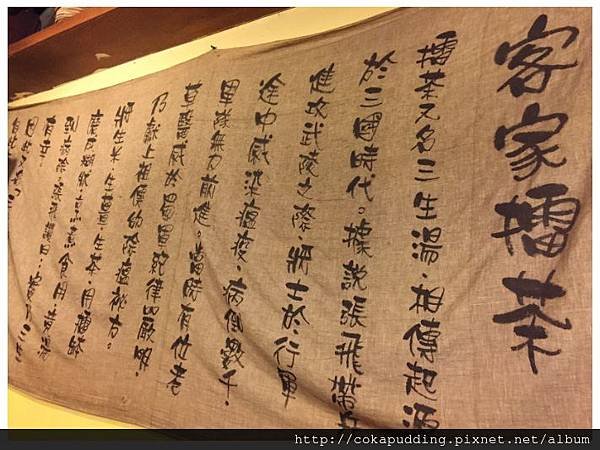 客家擂茶
擂茶又名三生湯，相傳起源
於三國時代。據說張飛帶兵
進攻武陵之際，將士於行軍
途中感染瘟疫，病倒數千，
軍隊無力前進。當時有位老
草醫感於蜀軍紀律嚴明，
乃獻上祖傳的除瘟秘方。
將生米、生薑、生茶，用擂缽
磨成糊狀，烹煮食用，喝湯
到病除。張飛讚曰：實乃三生
有幸。
http://cokapudding.pixnet.net/album